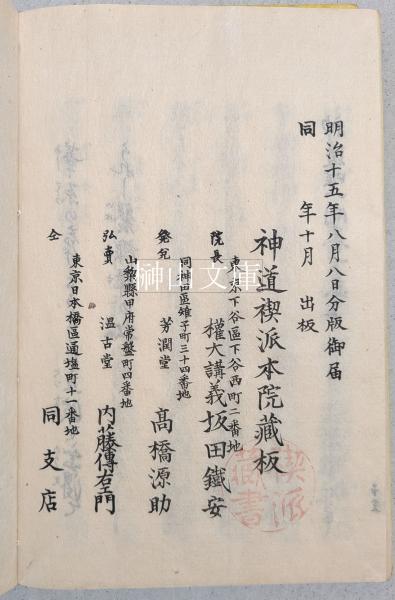 明治十五年八月八日分版御届
同　年十月　出板
神道禊派本院藏板
東京下谷區下谷西町二番地
院長　權大講義坂田鐵安
同神田區雉子町三十四番地
發兌　芳潤堂　高橋源助
山梨縣甲府常盤町四番地
弘賣　温古堂　内藤傳右衛門
東京日本橋區通塩町十一番地
仝　同支店
禊派藏書
神山文庫